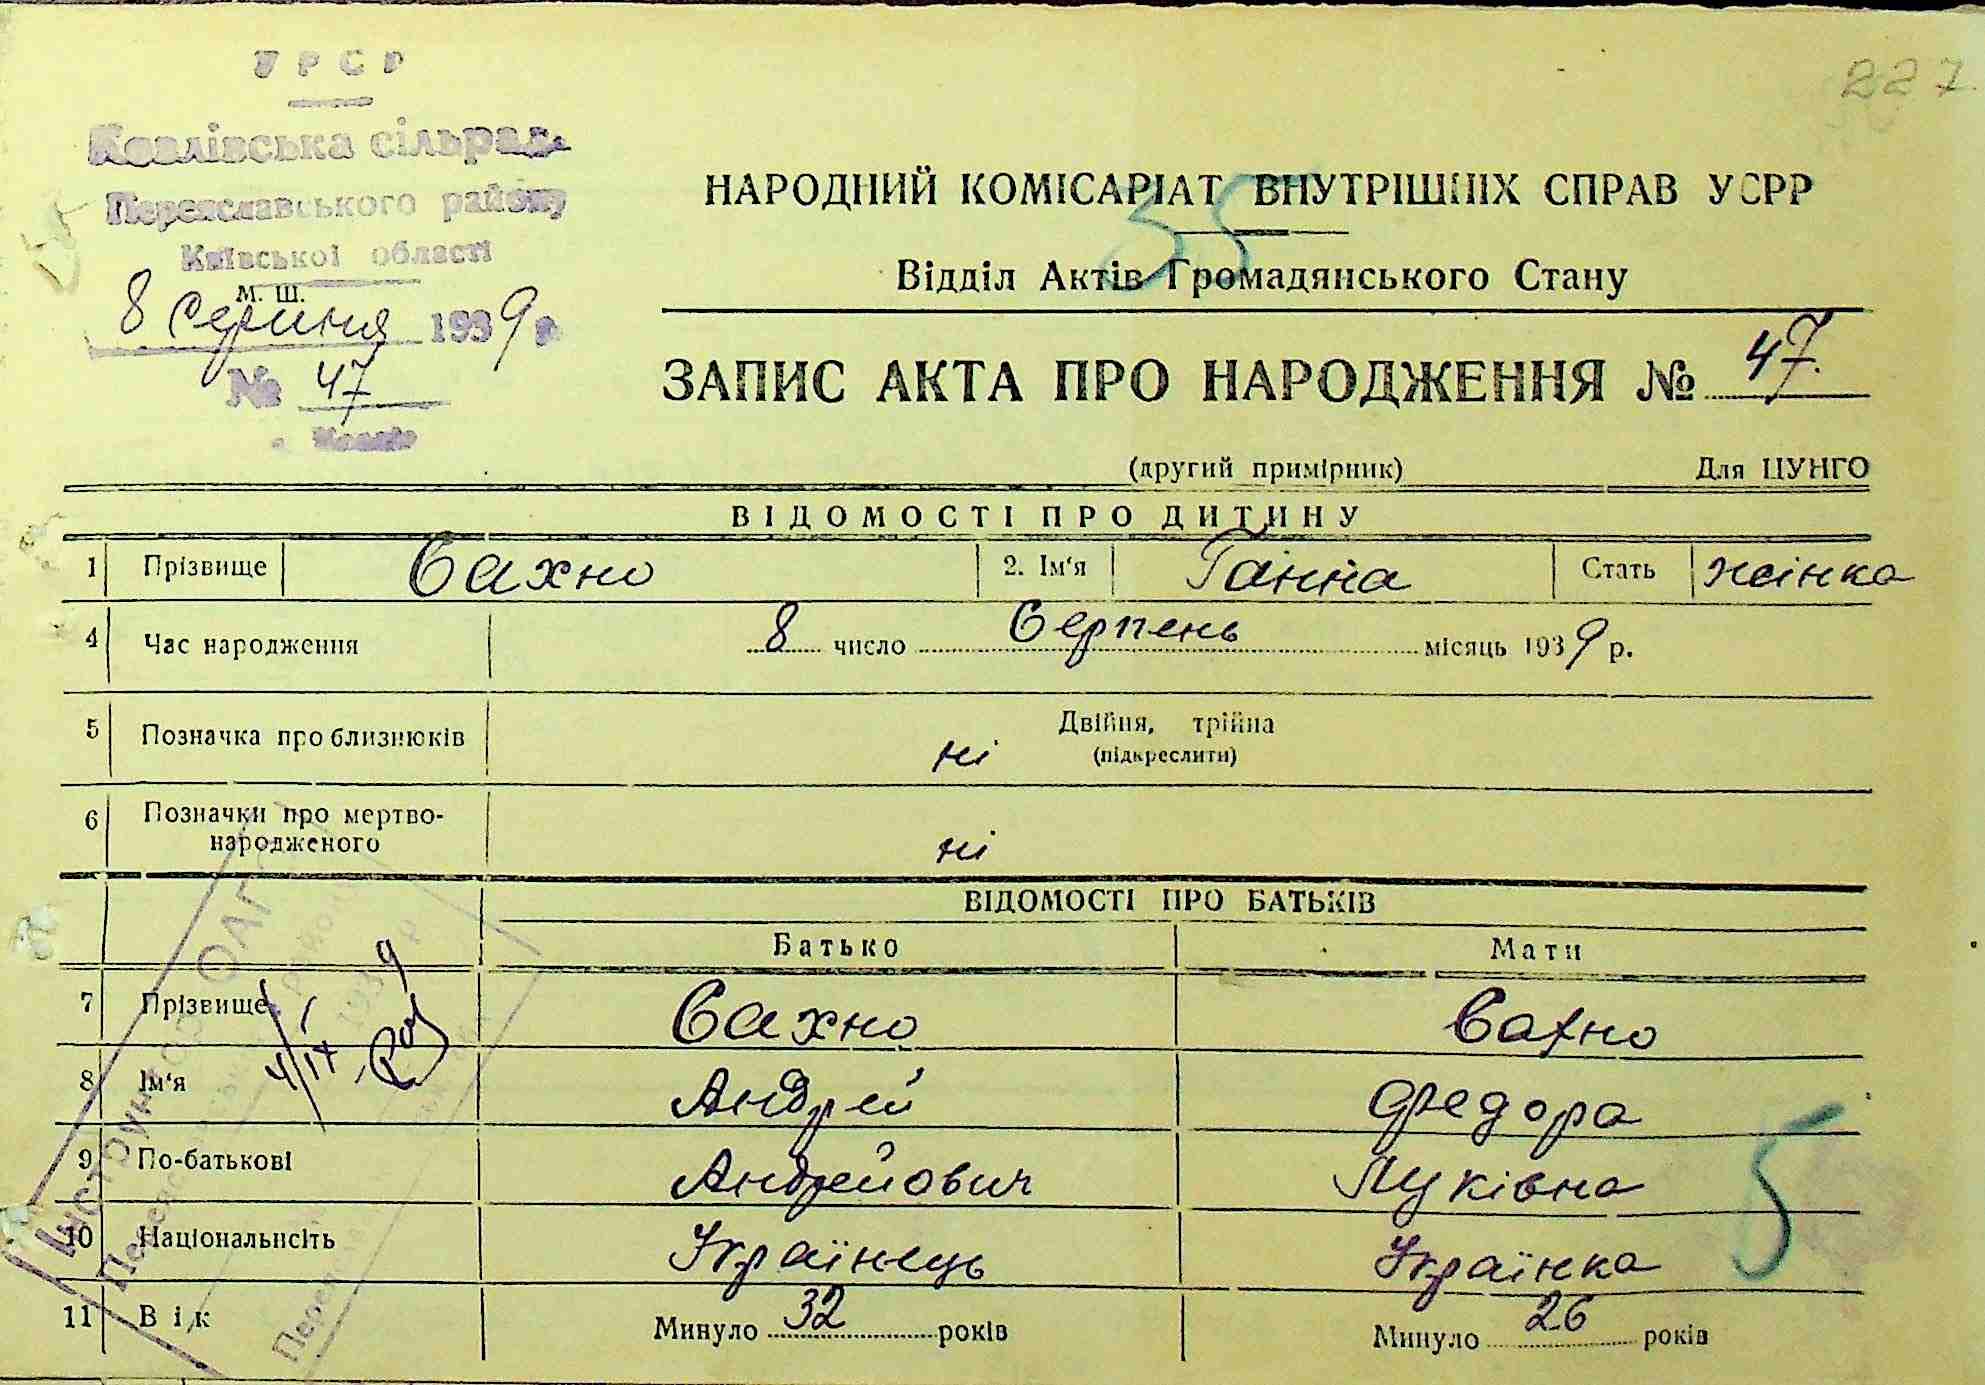 УРСР
227
Козлівська сільрада
Переяславського району
Київської області
М. Ш.
8 Серпня 1939 р.
№ 47
НАРОДНИЙ КОМІСАРІАТ ВНУТРІШНІХ СПРАВ УСРР
35
Відділ Актів Громадянського Стану
ЗАПИС АКТА ПРО НАРОДЖЕННЯ № 47.
(другий примірник) Для ЦУНГО
ВІДОМОСТІ ПРО ДИТИНУ
1 Прізвище Сахно 2. Ім'я Ганна Стать жінка
4 Час народження 8 число Серпень місяць 1939 р.
5 Позначка про близнюків ні Двійня, трійна
(підкреслити)
6 Позначки про мертво-
народженого ні
ВІДОМОСТІ ПРО БАТЬКІВ
Батько Мати
7 Прізвище Сахно Сахно
8 Ім'я Андрей Федора
9 По-батькові Андрейович Луківна
10 Національнсіть Українець Українка
11 Вік Минуло 32 років Минуло 26 років
Інструктор ОАГС
району
4/IX 1939 р
5